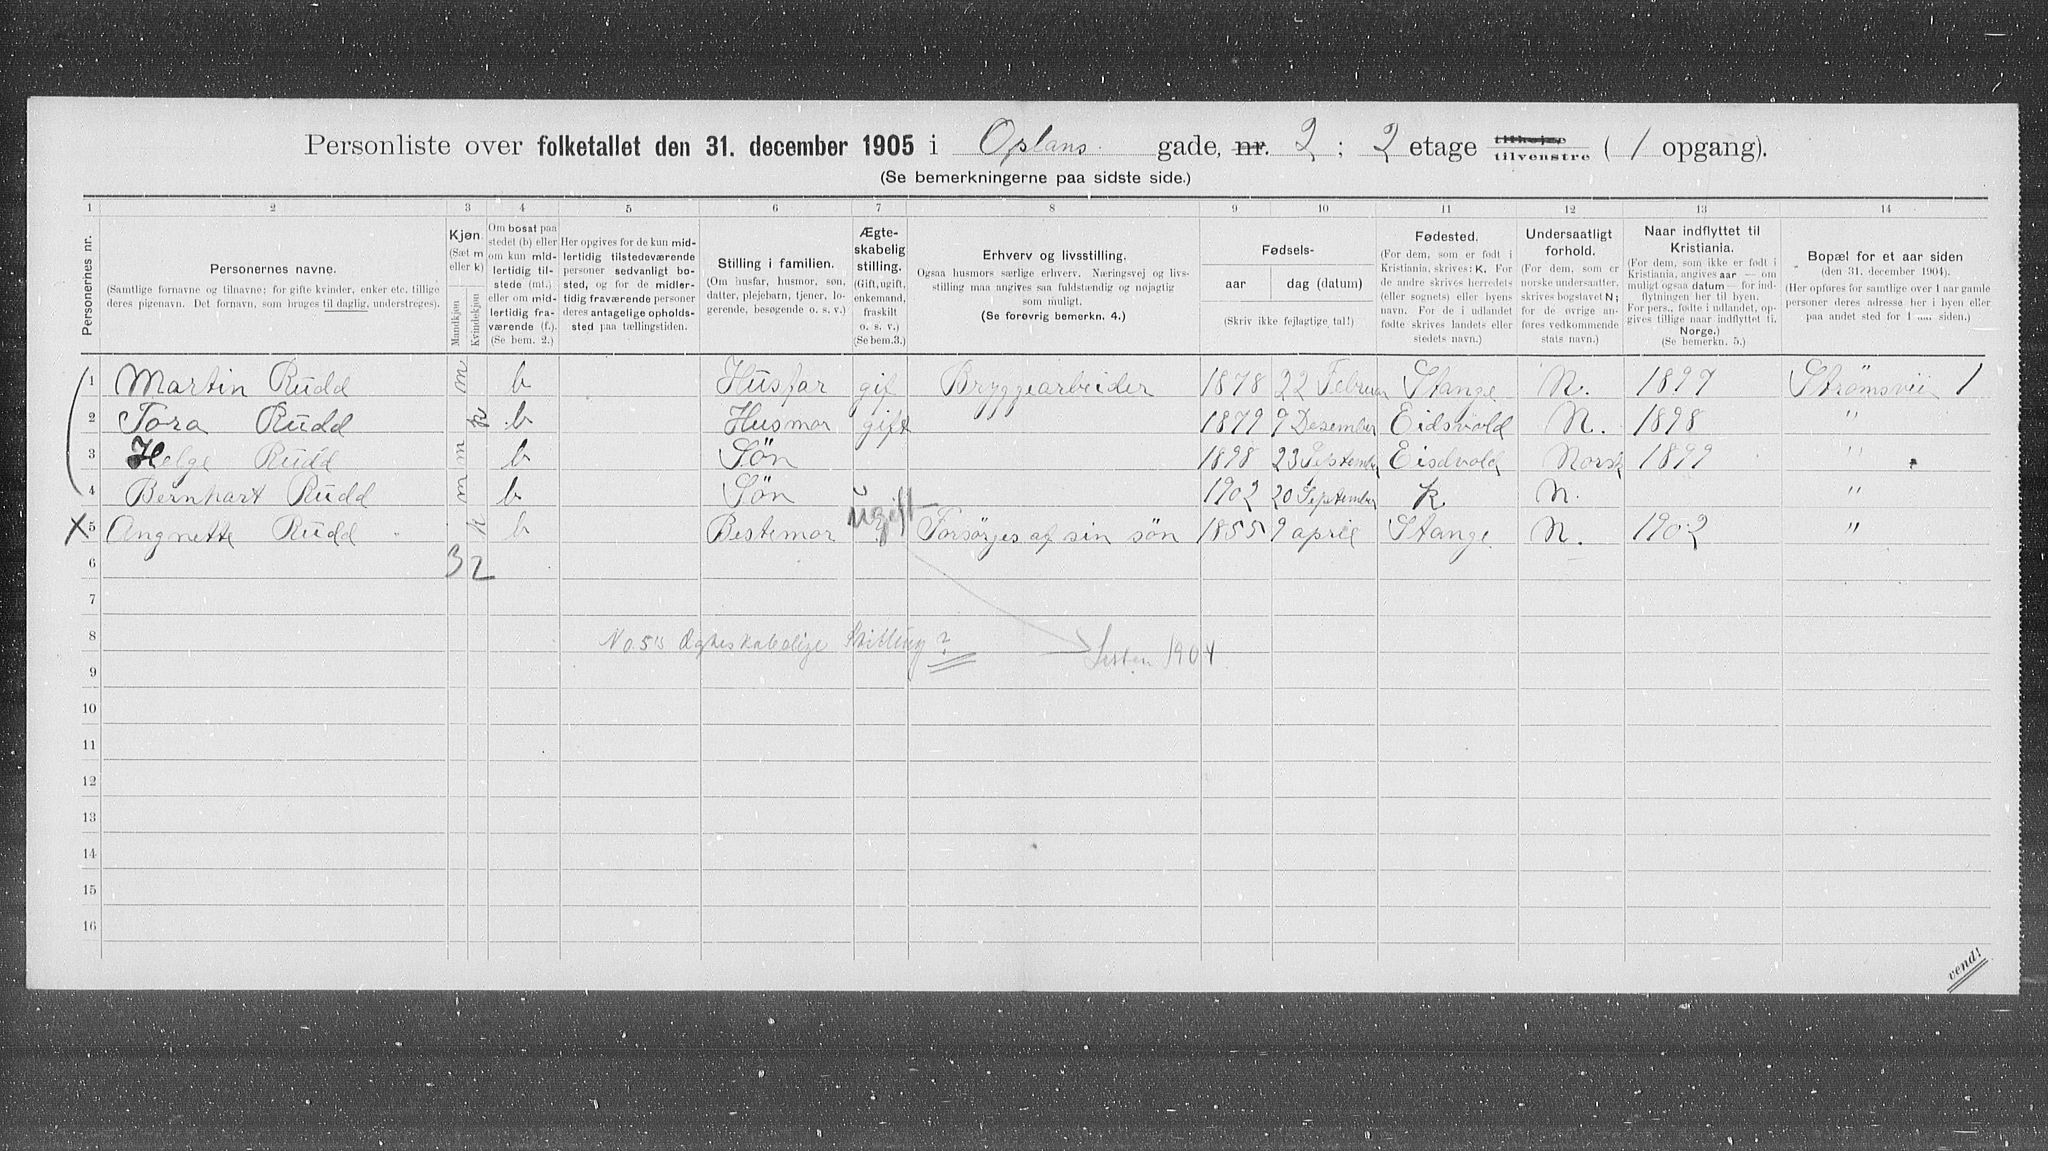 Personliste over folketallet den 31. december 1905 i Oplans. gade, nr. 2 ; 2 etage tilhøjre tilvenstre ( 1 opgang).
(Se bemerkningerne paa sidste side.)
1 2 3 4 5 6 7 8 9 10 11 12 13 14
Personernes nr.
Personernes navne.
(Samtlige fornavne og tilnavne; for gifte kvinder, enker etc. tillige deres pigenavn. Det fornavn, som bruges til daglig, understreges).
Kjøn.
(Sæt m eller k)
Mandkjøn
Kvindekjøn
Om bosat paa stedet (b) eller om kun midlertidig tilstede (mt.) eller om midlertidig fraværende (f.). (Se bem. 2.)
Her opgives for de kun midlertidig tilstedeværende personer sedvanligt bosted, og for de midlertidig fraværende personer deres antagelige opholdssted paa tællingstiden.
Stilling i familien.
(Om husfar, husmor, søn, datter, plejebarn, tjener, logerende, besøgende o. s. v.)
Ægteskabelig stilling.
(Gift, ugift, enkemand, fraskilt o. s. v.)
(Se bem. 3.)
Erhverv og livsstilling.
Ogsaa husmors særlige erhverv. Næringsvej og livsstilling maa angives saa fuldstændig og nøjagtig som muligt.
(Se forøvrig bemerkn. 4.)
Fødsels-
aar dag (datum)
(Skriv ikke fejlagtige tal!)
Fødested.
(For dem, som er født i Kristiania, skrives: K. For de andre skrives herredets (eller sognets) eller byens navn. For de i udlandet fødte skrives landets eller stedets navn.)
Undersaatligt forhold.
(For dem, som er norske undersaatter, skrives bogstavet N; for de øvrige anføres vedkommende stats navn.)
Naar indflyttet til Kristiania.
(For dem, som ikke er født i Kristiania, angives aar — om muligt ogsaa datum — for indflytningen her til byen. For pers., fødte i udlandet, opgives tillige naar indflyttet til Norge.)
(Se bemerkn. 5.)
Bopæl for et aar siden
(den 31. december 1904).
(Her opføres for samtlige over 1 aar gamle personer deres adresse her i byen eller paa andet sted for 1 aar siden.)
1 Martin Rudd m b Husfar gif Bryggearbeider 1878 22 Februar Stange N. 1897 Strømsvei 1
2 Tora Rudd k b Husmor gift 1879 9 Desember Eidsvold N. 1898 "
3 Helge Rudd m b Søn 1898 23 September Eisdvold Norsk 1899 "
4 Bernhart Rudd m b Søn 1902 20 September k N. "
X 5 Angnette Rudd k b Bestemor ugift Forsørges af sin søn 1855 9 april Stange N. 1902 "
6 3 2
7
8 No. 5's Ægteskabelige Stilling? Listen 1904
9
10
11
12
13
14
15
16
vend!